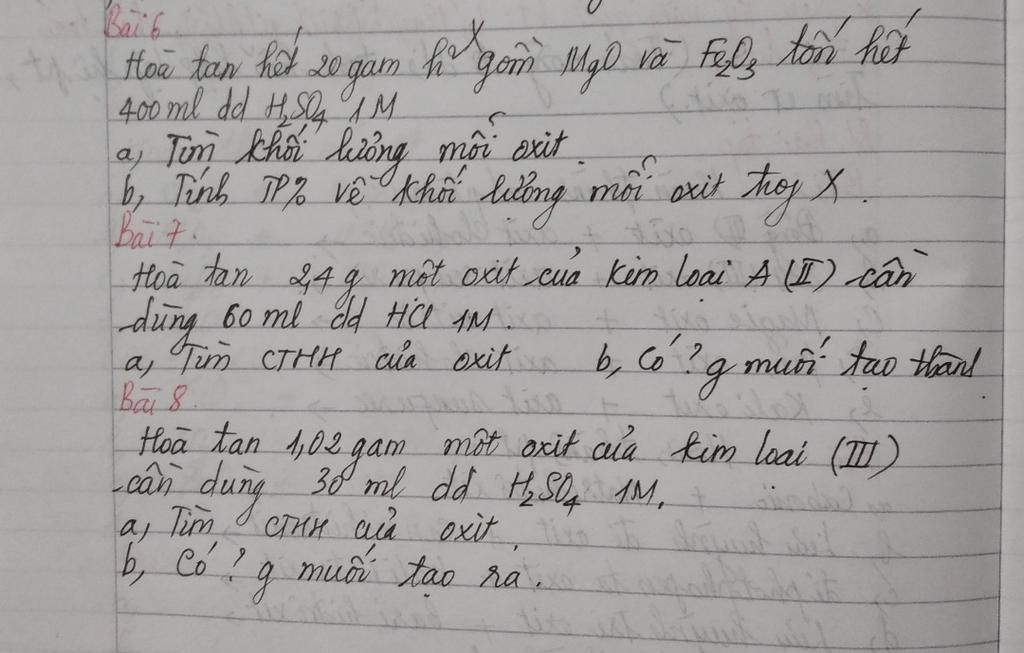 Bài 6
Hoà tan hết 20 gam h² X gồm MgO và Fe₂O₃ tốn hết
400 ml dd H₂SO₄ 1M
a, Tìm khối lượng mỗi oxit.
b, Tính TP% về khối lượng mỗi oxit trog X.
Bài 7.
Hoà tan 2,4 g một oxit của kim loại A (II) cần
dùng 60 ml dd HCl 1M.
a, Tìm CTHH của oxit b, Có ? g muối tạo thành
Bài 8.
Hoà tan 1,02 gam một oxit của kim loại (III)
cần dùng 30 ml dd H₂SO₄ 1M.
a, Tìm CTHH của oxit.
b, Có ? g muối tạo ra.